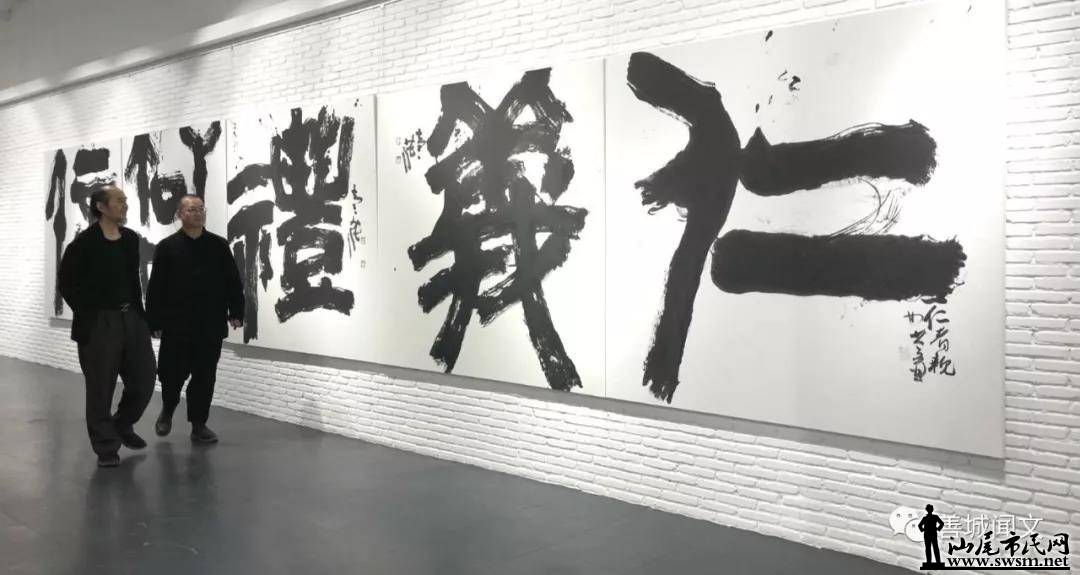 仁
義
禮
智
信
仁者
善城闻文
汕尾市民网
www.swsm.net